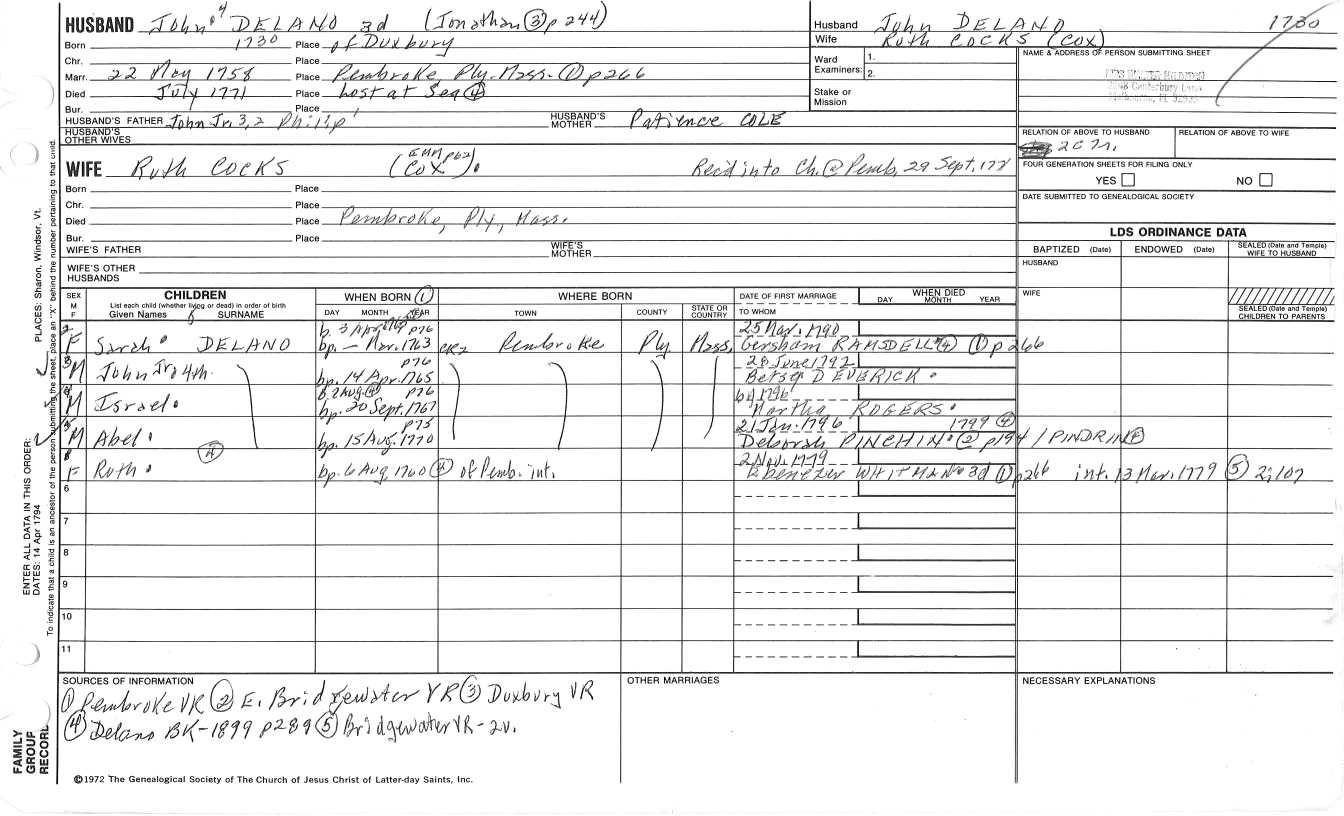 HUSBAND John⁴ DELANO 3d (Jonathan ③ p 244)
Born 1730 Place of Duxbury
Chr. Place
Marr. 22 May 1758 Place Pembroke, Ply. Mass. ① p266
Died July 1771 Place Lost at Sea ④
Bur. Place
HUSBAND'S FATHER John Jr. 3, 2 Philip¹ HUSBAND'S MOTHER Patience COLE
HUSBAND'S OTHER WIVES
Husband John DELANO 1730
Wife Ruth COCKS (COX)
Ward Examiners: 1.
2.
Stake or Mission
NAME & ADDRESS OF PERSON SUBMITTING SHEET
Canterbury Lane
Melbourne, FL
RELATION OF ABOVE TO HUSBAND RELATION OF ABOVE TO WIFE
2C7r.
FOUR GENERATION SHEETS FOR FILING ONLY
YES NO
DATE SUBMITTED TO GENEALOGICAL SOCIETY
WIFE Ruth COCKS (COX). p62 Rec'd into Ch. @ Pemb. 29 Sept, 177
Born Place
Chr. Place
Died Place Pembroke, Ply, Mass.
Bur. Place
WIFE'S FATHER WIFE'S MOTHER
WIFE'S OTHER HUSBANDS
LDS ORDINANCE DATA
BAPTIZED (Date) ENDOWED (Date) SEALED (Date and Temple) WIFE TO HUSBAND
HUSBAND
WIFE
SEALED (Date and Temple) CHILDREN TO PARENTS
SEX M F
CHILDREN
List each child (whether living or dead) in order of birth
Given Names SURNAME
WHEN BORN ①
DAY MONTH YEAR
WHERE BORN
TOWN COUNTY STATE OR COUNTRY
DATE OF FIRST MARRIAGE
TO WHOM
WHEN DIED
DAY MONTH YEAR
2 b. 3 Apr p76 25 Mar. 1790
F Sarah DELANO bp. – Mar. 1763 Pembroke Ply Mass, Gersham RAMSDELL ④ ① p266
3 M John Jr. 4th. p76 28 June 1792
bp. 14 Apr. 1765 Betsey DEVERICK.
4 M Israel. b. 2 Aug. ④ p76 by 1796
bp. 20 Sept. 1767 Martha ROGERS.
5 M Abel. p75 21 Jan. 1796 1799 ④
bp. 15 Aug. 1770 Deborah PINCHIN. ② p194 / PINDRIN ④
④ 2 Nov. 1779
F Ruth. bp. 6 Aug. 1760 ④ of Pemb. int. Ebenezer WHITMAN 3d ① p266 int. 13 Mar. 1779 ⑤ 2; 107
6
7
8
9
10
11
SOURCES OF INFORMATION
① Pembroke VR ② E. Bridgewater VR ③ Duxbury VR
④ Delano BK-1899 p289 ⑤ Bridgewater VR - 2v.
OTHER MARRIAGES
NECESSARY EXPLANATIONS
©1972 The Genealogical Society of The Church of Jesus Christ of Latter-day Saints, Inc.
FAMILY GROUP RECORD
ENTER ALL DATA IN THIS ORDER:
DATES: 14 Apr 1794 PLACES: Sharon, Windsor, Vt.
To indicate that a child is an ancestor of the person submitting the sheet, place an "X" behind the number pertaining to that child.